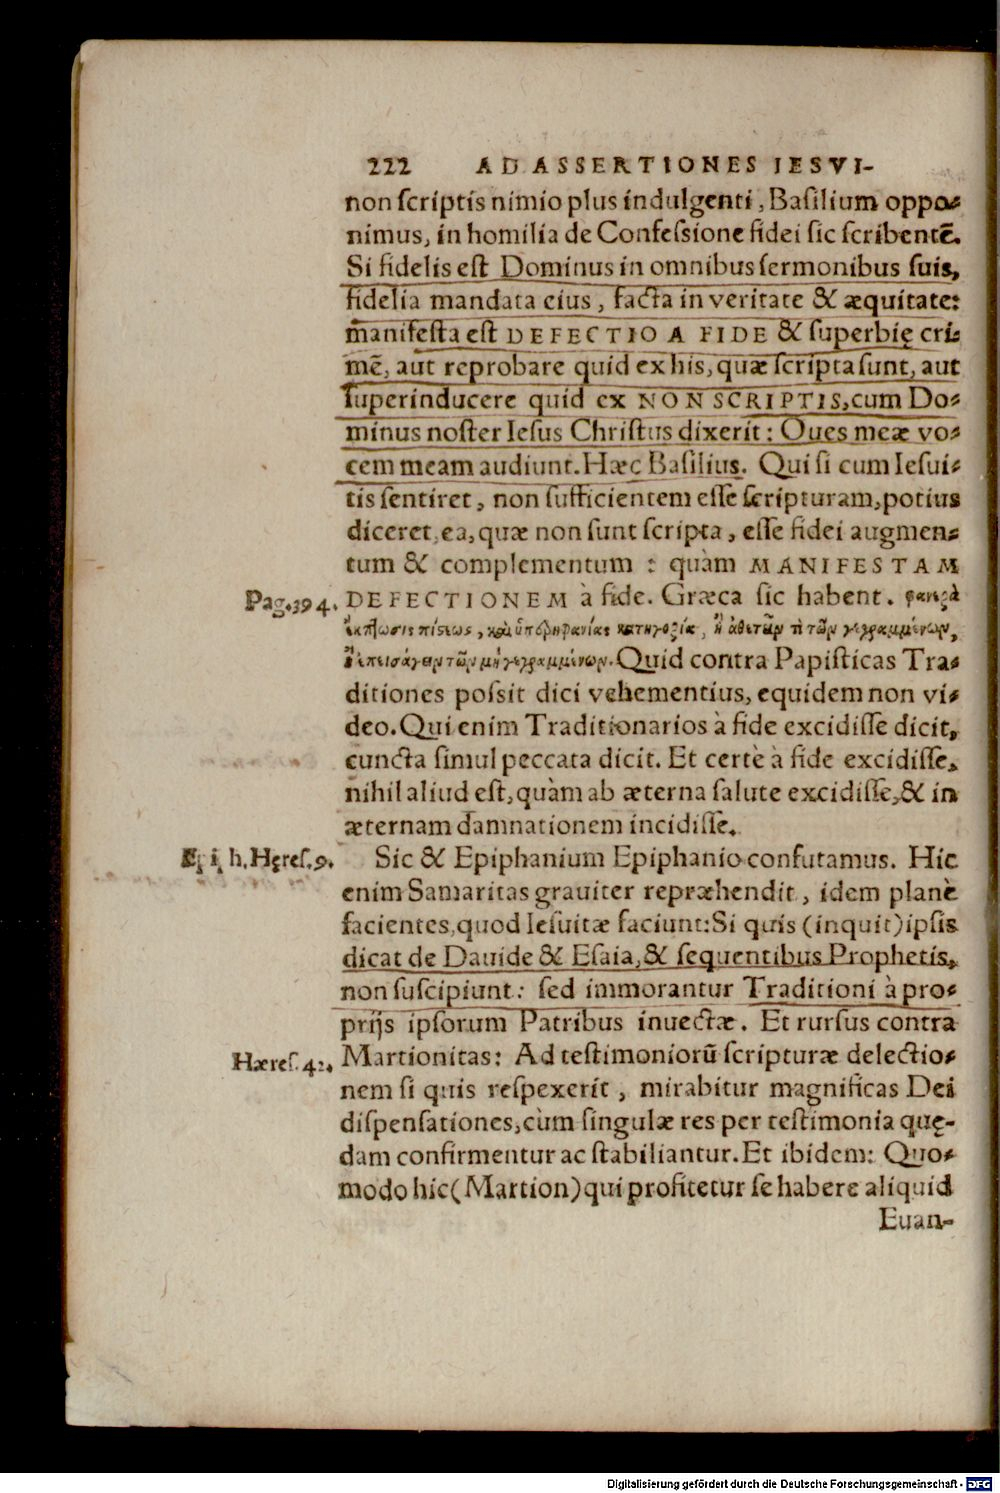 222 AD ASSERTIONES IESVI-
non ſcriptis nimio plus indulgenti, Baſilium oppo-
nimus, in homilia de Confeſsione fidei ſic ſcribentē.
Si fidelis eſt Dominus in omnibus ſermonibus ſuis,
fidelia mandata eius, facta in veritate & æquitate:
manifeſta eſt DEFECTIO A FIDE & ſuperbię cri-
mē, aut reprobare quid ex his, quæ ſcripta ſunt, aut
ſuperinducere quid ex NON SCRIPTIS, cum Do-
minus noſter Ieſus Chriſtus dixerit: Oues meæ vo-
cem meam audiunt. Hæc Baſilius. Qui ſi cum Ieſui-
tis ſentiret, non ſufficientem eſſe ſcripturam, potius
diceret, ea, quæ non ſunt ſcripta, eſſe fidei augmen-
tum & complementum : quàm MANIFESTAM
Pag. 394. DEFECTIONEM à fide. Græca ſic habent. φανερὰ
ἔκπτωσις πίστεως, καὶ ὑπερηφανίας κατηγορία, ἢ ἀθετεῖν τι τῶν γεγραμμένων,
ἢ ἐπεισάγειν τῶν μὴ γεγραμμένων. Quid contra Papiſticas Tra-
ditiones poſsit dici vehementius, equidem non vi-
deo. Qui enim Traditionarios à fide excidiſſe dicit,
cuncta ſimul peccata dicit. Et certè à fide excidiſſe,
nihil aliud eſt, quàm ab æterna ſalute excidiſſe, & in
æternam damnationem incidiſſe.
h. Hęreſ. 9. Sic & Epiphanium Epiphanio confutamus. Hic
enim Samaritas grauiter repræhendit, idem planè
facientes, quod Ieſuitæ faciunt: Si quis (inquit) ipſis
dicat de Dauide & Eſaia, & ſequentibus Prophetis,
non ſuſcipiunt: ſed immorantur Traditioni à pro-
prijs ipſorum Patribus inuectæ. Et rurſus contra
Hæreſ. 42. Martionitas: Ad teſtimoniorū ſcripturæ delectio-
nem ſi quis reſpexerit, mirabitur magnificas Dei
diſpenſationes, cùm ſingulæ res per teſtimonia quę-
dam confirmentur ac ſtabiliantur. Et ibidem: Quo-
modo hic (Martion) qui profitetur ſe habere aliquid
Euan-
Digitalisierung gefördert durch die Deutsche Forschungsgemeinschaft - DFG